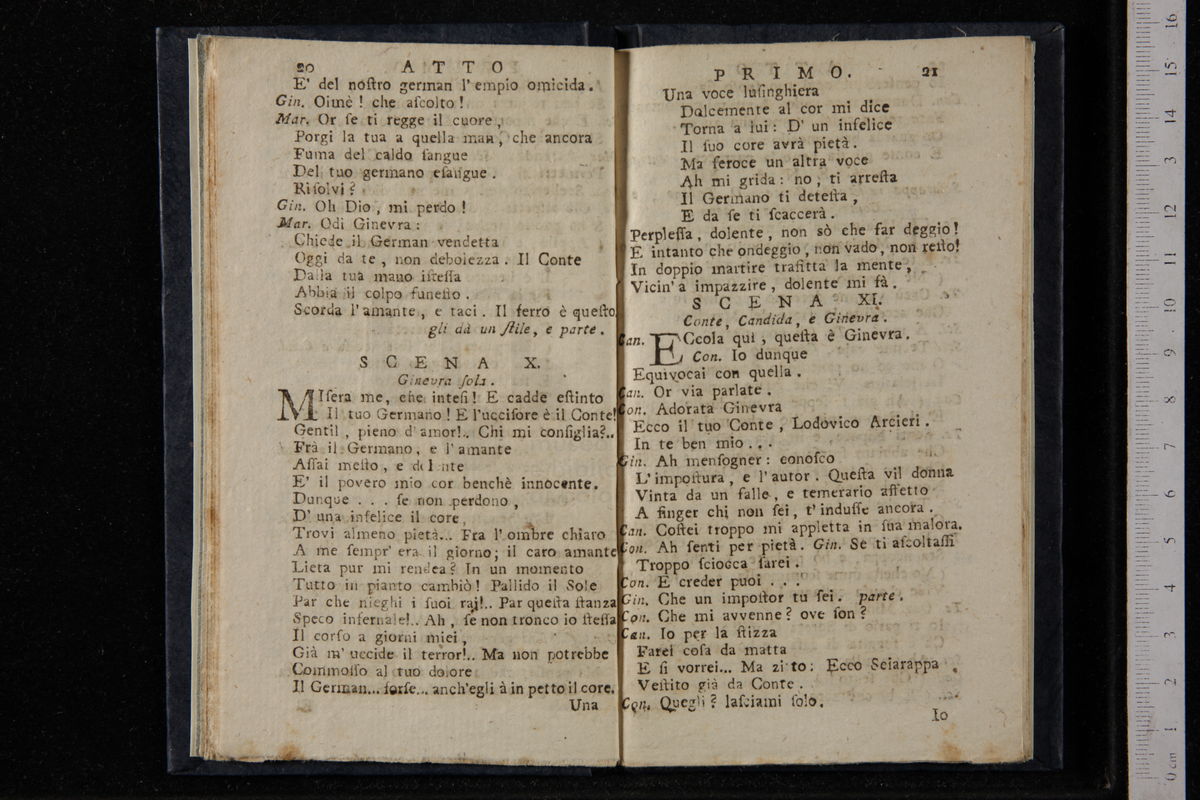 20 ATTO
E' del noſtro german l'empio omicida.
Gin. Oimè! che aſcolto!
Mar. Or ſe ti regge il cuore,
Porgi la tua a quella man, che ancora
Fuma del caldo ſangue
Del tuo germano eſangue.
Riſolvi?
Gin. Oh Dio, mi perdo!
Mar. Odi Ginevra:
Chiede il German vendetta
Oggi da te, non debolezza. Il Conte
Dalla tua mano iſteſſa
Abbia il colpo funeſto.
Scorda l'amante, e taci. Il ferro è queſto.
gli dà un ſtile, e parte.
SCENA X.
Ginevra ſola.
MIſera me, che inteſi! E cadde eſtinto
Il tuo Germano! E l'ucciſore è il Conte!
Gentil, pieno d'amor!.. Chi mi conſiglia?..
Frà il Germano, e l'amante
Aſſai meſto, e dolente
E' il povero mio cor benchè innocente.
Dunque . . . ſe non perdono,
D' una infelice il core
Trovi almeno pietà... Fra l'ombre chiaro
A me ſempr' era il giorno; il caro amante
Lieta pur mi rendea? In un momento
Tutto in pianto cambiò! Pallido il Sole
Par che nieghi i ſuoi raj!.. Par queſta ſtanza
Speco infernale!.. Ah, ſe non tronco io ſteſſa
Il corſo a giorni miei,
Già m' uccide il terror!.. Ma non potrebbe
Commoſſo al tuo dolore
Il German... forſe... anch'egli à in petto il core.
Una
PRIMO. 21
Una voce luſinghiera
Dolcemente al cor mi dice
Torna a lui: D' un infelice
Il ſuo core avrà pietà.
Ma feroce un altra voce
Ah mi grida: no, ti arreſta
Il Germano ti deteſta,
E da ſe ti ſcaccerà.
Perpleſſa, dolente, non sò che far deggio!
E intanto che ondeggio, non vado, non reſto!
In doppio martire trafitta la mente,
Vicin' a impazzire, dolente mi fà.
SCENA XI.
Conte, Candida, e Ginevra.
Can. ECcola qui, queſta è Ginevra.
Con. Io dunque
Equivocai con quella.
Can. Or via parlate.
Con. Adorata Ginevra
Ecco il tuo Conte, Lodovico Arcieri.
In te ben mio . . .
Gin. Ah menſogner: conoſco
L'impoſtura, e l'autor. Queſta vil donna
Vinta da un falſe, e temerario affetto
A finger chi non ſei, t' induſſe ancora.
Can. Coſtei troppo mi appletta in ſua malora.
Con. Ah ſenti per pietà. Gin. Se ti aſcoltaſſi
Troppo ſciocca ſarei.
Con. E creder puoi . . .
Gin. Che un impoſtor tu ſei. parte.
Con. Che mi avvenne? ove ſon?
Can. Io per la ſtizza
Farei coſa da matta
E ſi vorrei... Ma zitto: Ecco Sciarappa
Veſtito già da Conte.
Con. Quegli? laſciami ſolo.
Io